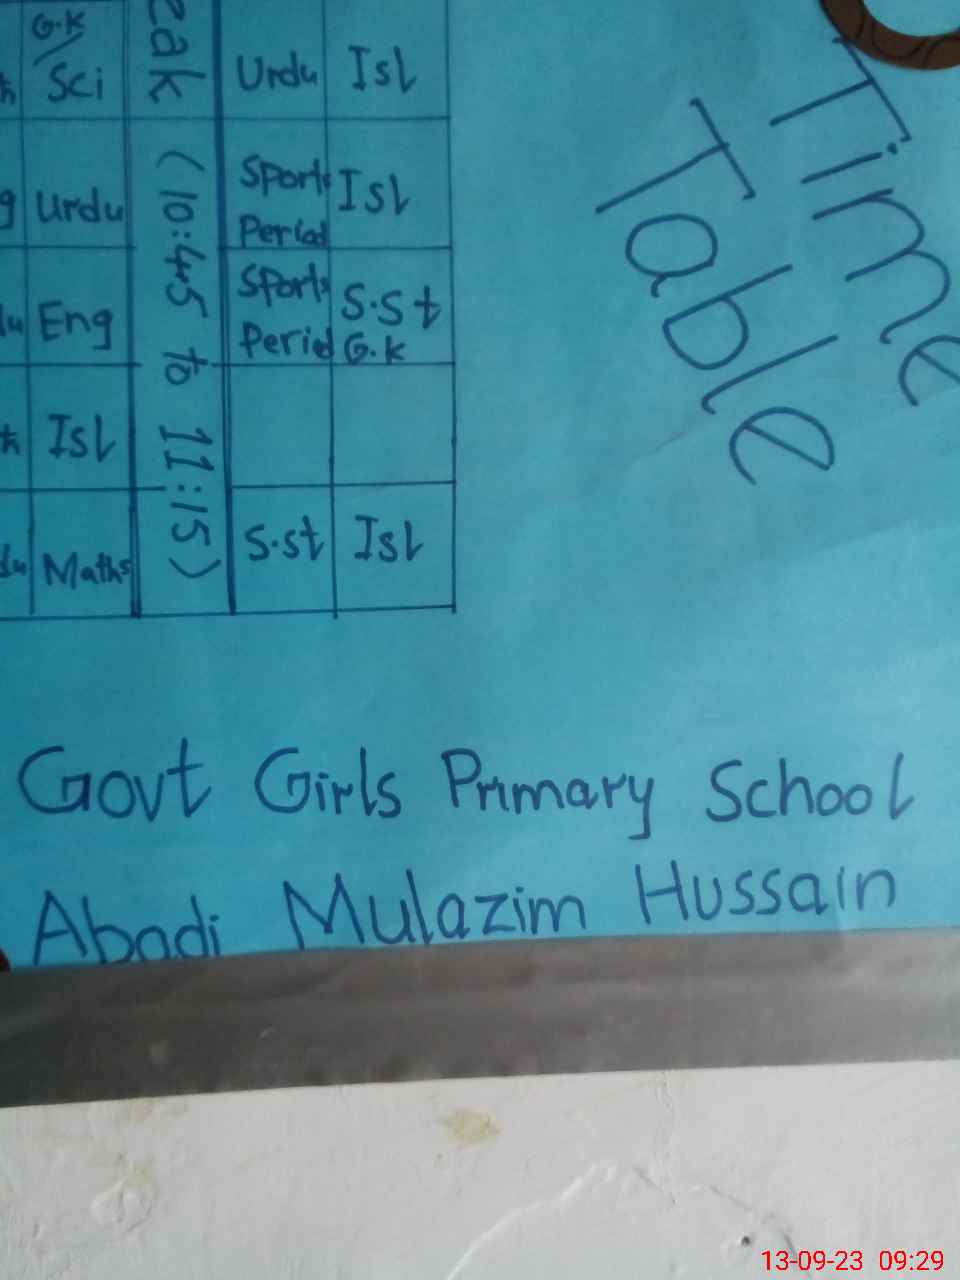 G.K
Sci Urdu Isl
Urdu Sports Isl
Period
Eng Sports S.St
Period G.K
Isl
Maths S.st Isl
(10:45 to 11:15)
Time
Table
Govt Girls Primary School
Abadi Mulazim Hussain
13-09-23 09:29